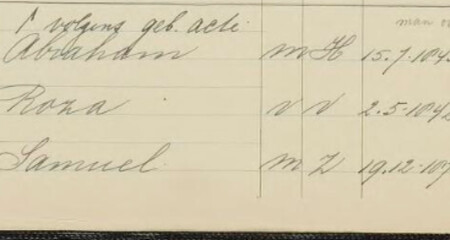 volgens geb. acte
man
Abraham m H 15.7.184
Roza v v 2.5-184
Samuel m Z 19.12-187